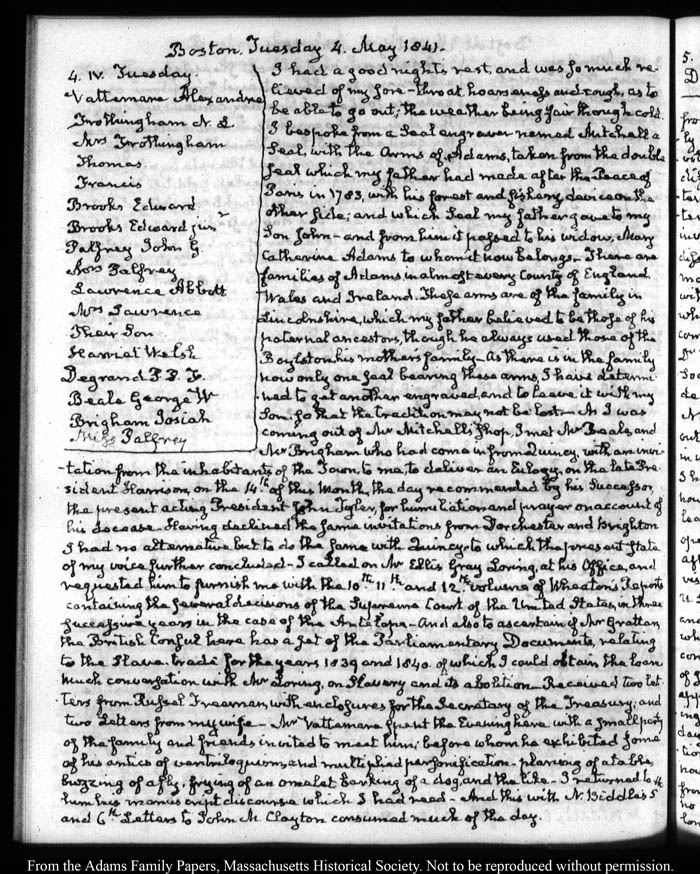 Boston. Tuesday 4. May 1841.
4. IV. Tuesday.
Vattemare Alexandre
Frothingham N. L.
Mrs Frothingham
Thomas.
Francis
Brooks Edward
Brooks Edward jun.r
Palfrey John G.
Mrs Palfrey
Lawrence Abbott
Mrs Lawrence
Their Son
Harriet Welsh
Degrand P. P. F.
Beale George W
Brigham Josiah
Miss Palfrey
I had a good night's rest, and was so much re-
lieved of my sore-throat hoarseness and cough, as to
be able to go out; the weather being fair though cold.
I bespoke from a Seal engraver named Mitchell a
Seal, with the Arms of Adams, taken from the double
Seal which my father had made after the Peace of
Paris in 1783, with his forest and fishery device on the
other side; and which Seal my father gave to my
Son John - and from him it passed to his widow, Mary
Catherine Adams to whom it now belongs - There are
families of Adams in almost every County of England
Wales and Ireland. These arms are of the family in
Lincolnshire, which my father believed to be those of his
paternal ancestors, though he always used those of the
Boylston his mothers family - As there is in the family
now only one seal bearing these arms, I have determi-
ned to get another engraved, and to leave it with my
Son, so that the tradition may not be lost - As I was
coming out of Mr Mitchell's shop, I met Mr Beale, and
Mr Brigham who had come in from Quincy, with an invi-
tation from the inhabitants of the Town, to me, to deliver an Eulogy, on the late Pre-
sident Harrison, on the 14th of this Month, the day recommended by his Successor,
the present acting President John Tyler, for humiliation and prayer on account of
his decease - Having declined the same invitations from Dorchester and Brighton
I had no alternative but to do the same with Quincy - to which the present state
of my voice further concluded - I called on Mr Ellis Gray Loring, at his Office, and
requested him to furnish me with the 10th 11th and 12th volume of Wheaton's Reports
containing the several decisions of the Supreme Court of the United States, in three
successive years in the case of the Antelope - And also to ascertain if Mr Grattan
the British Consul here has a set of the Parliamentary Documents, relating
to the Slave-trade for the years 1839 and 1840. of which I could obtain the loan
Much conversation with Mr Loring, on Slavery and its abolition - Received two let-
ters from Russel Freeman, with enclosures for the Secretary of the Treasury; and
two Letters from my wife - Mr Vattemare spent the Evening here with a small party
of the family and friends invited to meet him; before whom he exhibited some
of his antics of ventriloquism, and multiplied personification - planing of a table,
buzzing of a fly, frying of an omelet barking of a dog, and the like - I returned to
him his manuscript discourse which I had read - And this with N. Biddle's 5th
and 6th Letters to John M. Clayton consumed much of the day.
From the Adams Family Papers, Massachusetts Historical Society. Not to be reproduced without permission.